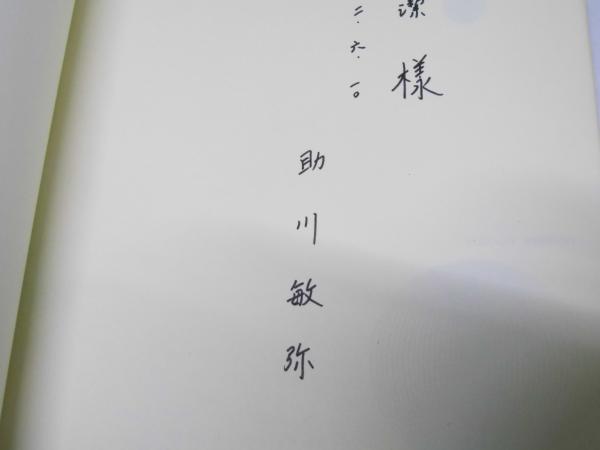 潔様
二.六.一〇
助川敏弥